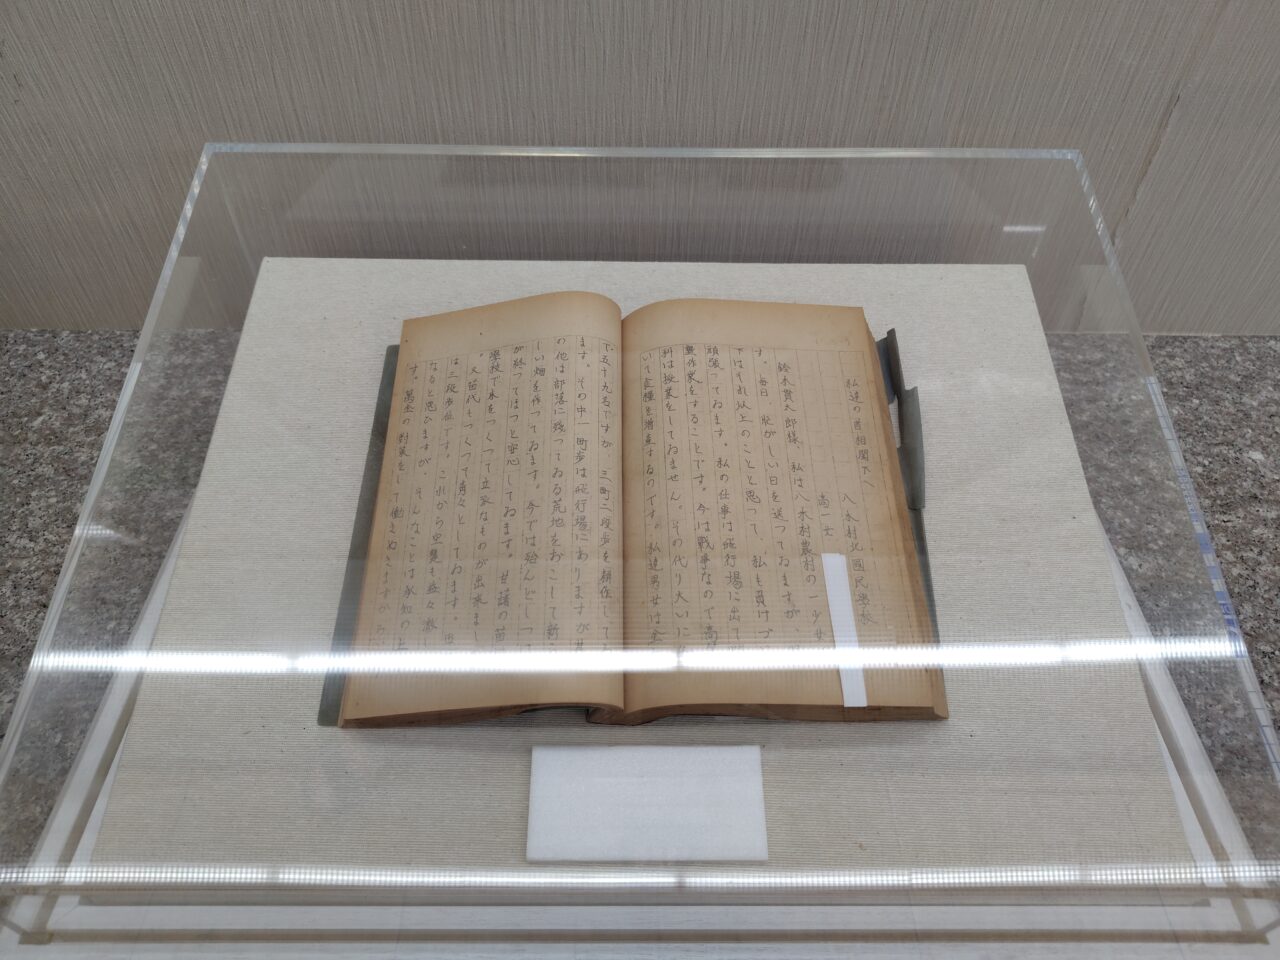 私達の首相閣下へ
八木村北國民學校
高一女
鈴木貫太郎様、私は八木村農村の一少女
す。毎日、忙がしい日を送つてゐますが、
下はそれ以上のことと思つて、私も負けづ
頑張つてゐます。私の仕事は飛行場に出て
農作業をすることです。今は戰爭なので高
科は授業をしてゐません。その代り大いに
いて食糧を増産するのです。私達男女は全
で五十九名ですが、三町二段歩を耕作して
ます。その中一町歩は飛行場にありますが其
の他は部落に殘つてゐる荒地をおこして新
しい畑を作つてゐます。今では殆んどしつ
が終つてほつと安心してゐます。甘藷の苗
學校で床をつくつて立派なものが出来まし
。又苗代もつくつて青々としてゐます。
は三段歩位です。これから空襲も益々激し
なると思ひますが、そんなことは承知の上
す。萬全の對策をして働きぬきますから